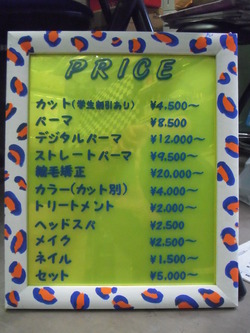 PRICE
カット(学生割引あり) ¥4,500〜
パーマ ¥8,500
デジタルパーマ ¥12,000〜
ストレートパーマ ¥9,500〜
縮毛矯正 ¥20,000〜
カラー(カット別) ¥4,000〜
トリートメント ¥2,000〜
ヘッドスパ ¥2,500
メイク ¥2,500〜
ネイル ¥1,500〜
セット ¥5,000〜